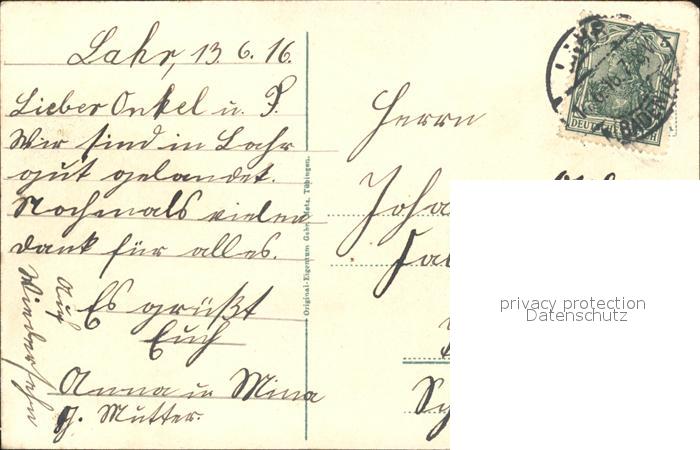 Lahr, 13.6.16.
Lieber Onkel u. T.
Wir sind in Lahr
gut gelandet.
Nochmals vielen
Dank für alles.
Es grüßt
Euch
Anna u Mina
g. Mutter.
Auf
Wiedersehn
Original-Eigentum Gebr. Metz, Tübingen.
Herrn
LAHR
BADEN
5
DEUTSCHES REICH
privacy protection
Datenschutz